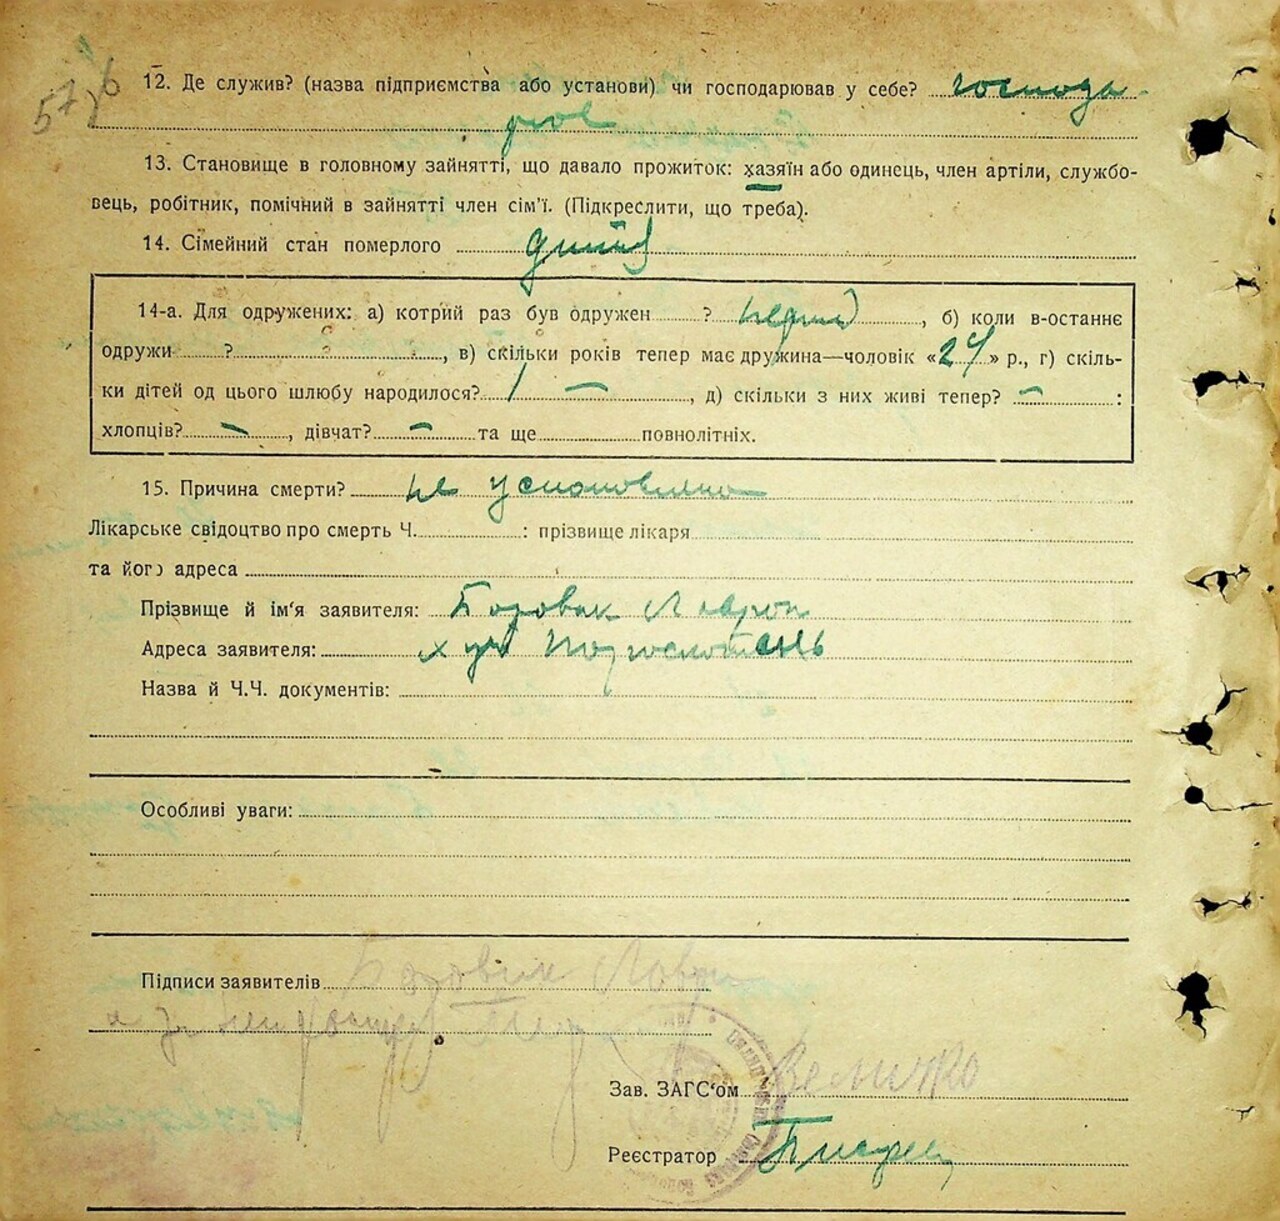 12. Де служив? (назва підприємства або установи) чи господарював у себе? господа-
рює
13. Становище в головному зайнятті, що давало прожиток: хазяїн або одинець, член артілі, службо-
вець, робітник, помічний в зайнятті член сім'ї. (Підкреслити, що треба).
14. Сімейний стан померлого
14-а. Для одружених: а) котрий раз був одружен ? перший, б) коли в-останнє
одружи ? ?, в) скільки років тепер має дружина—чоловік «24» р., г) скіль-
ки дітей од цього шлюбу народилося? —, д) скільки з них живі тепер? — :
хлопців? —, дівчат? — та ще повнолітніх.
15. Причина смерти? не усновлено
Лікарське свідоцтво про смерть Ч. : прізвище лікаря
та його адреса
Прізвище й ім'я заявителя: Боровик Лаврон
Адреса заявителя: хут
Назва й Ч.Ч. документів:
Особливі уваги:
Підписи заявителів Боровик
Зав. ЗАГС'ом Величко
Реєстратор